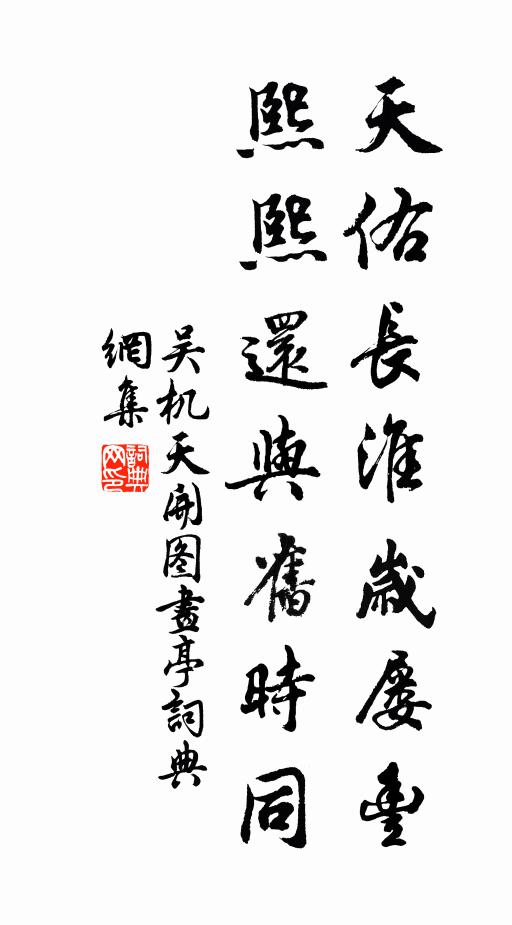 天佑長淮歲屢豐
熙熙還與舊時同
吴机天開图畫亭詞典
網集
詞典
网印